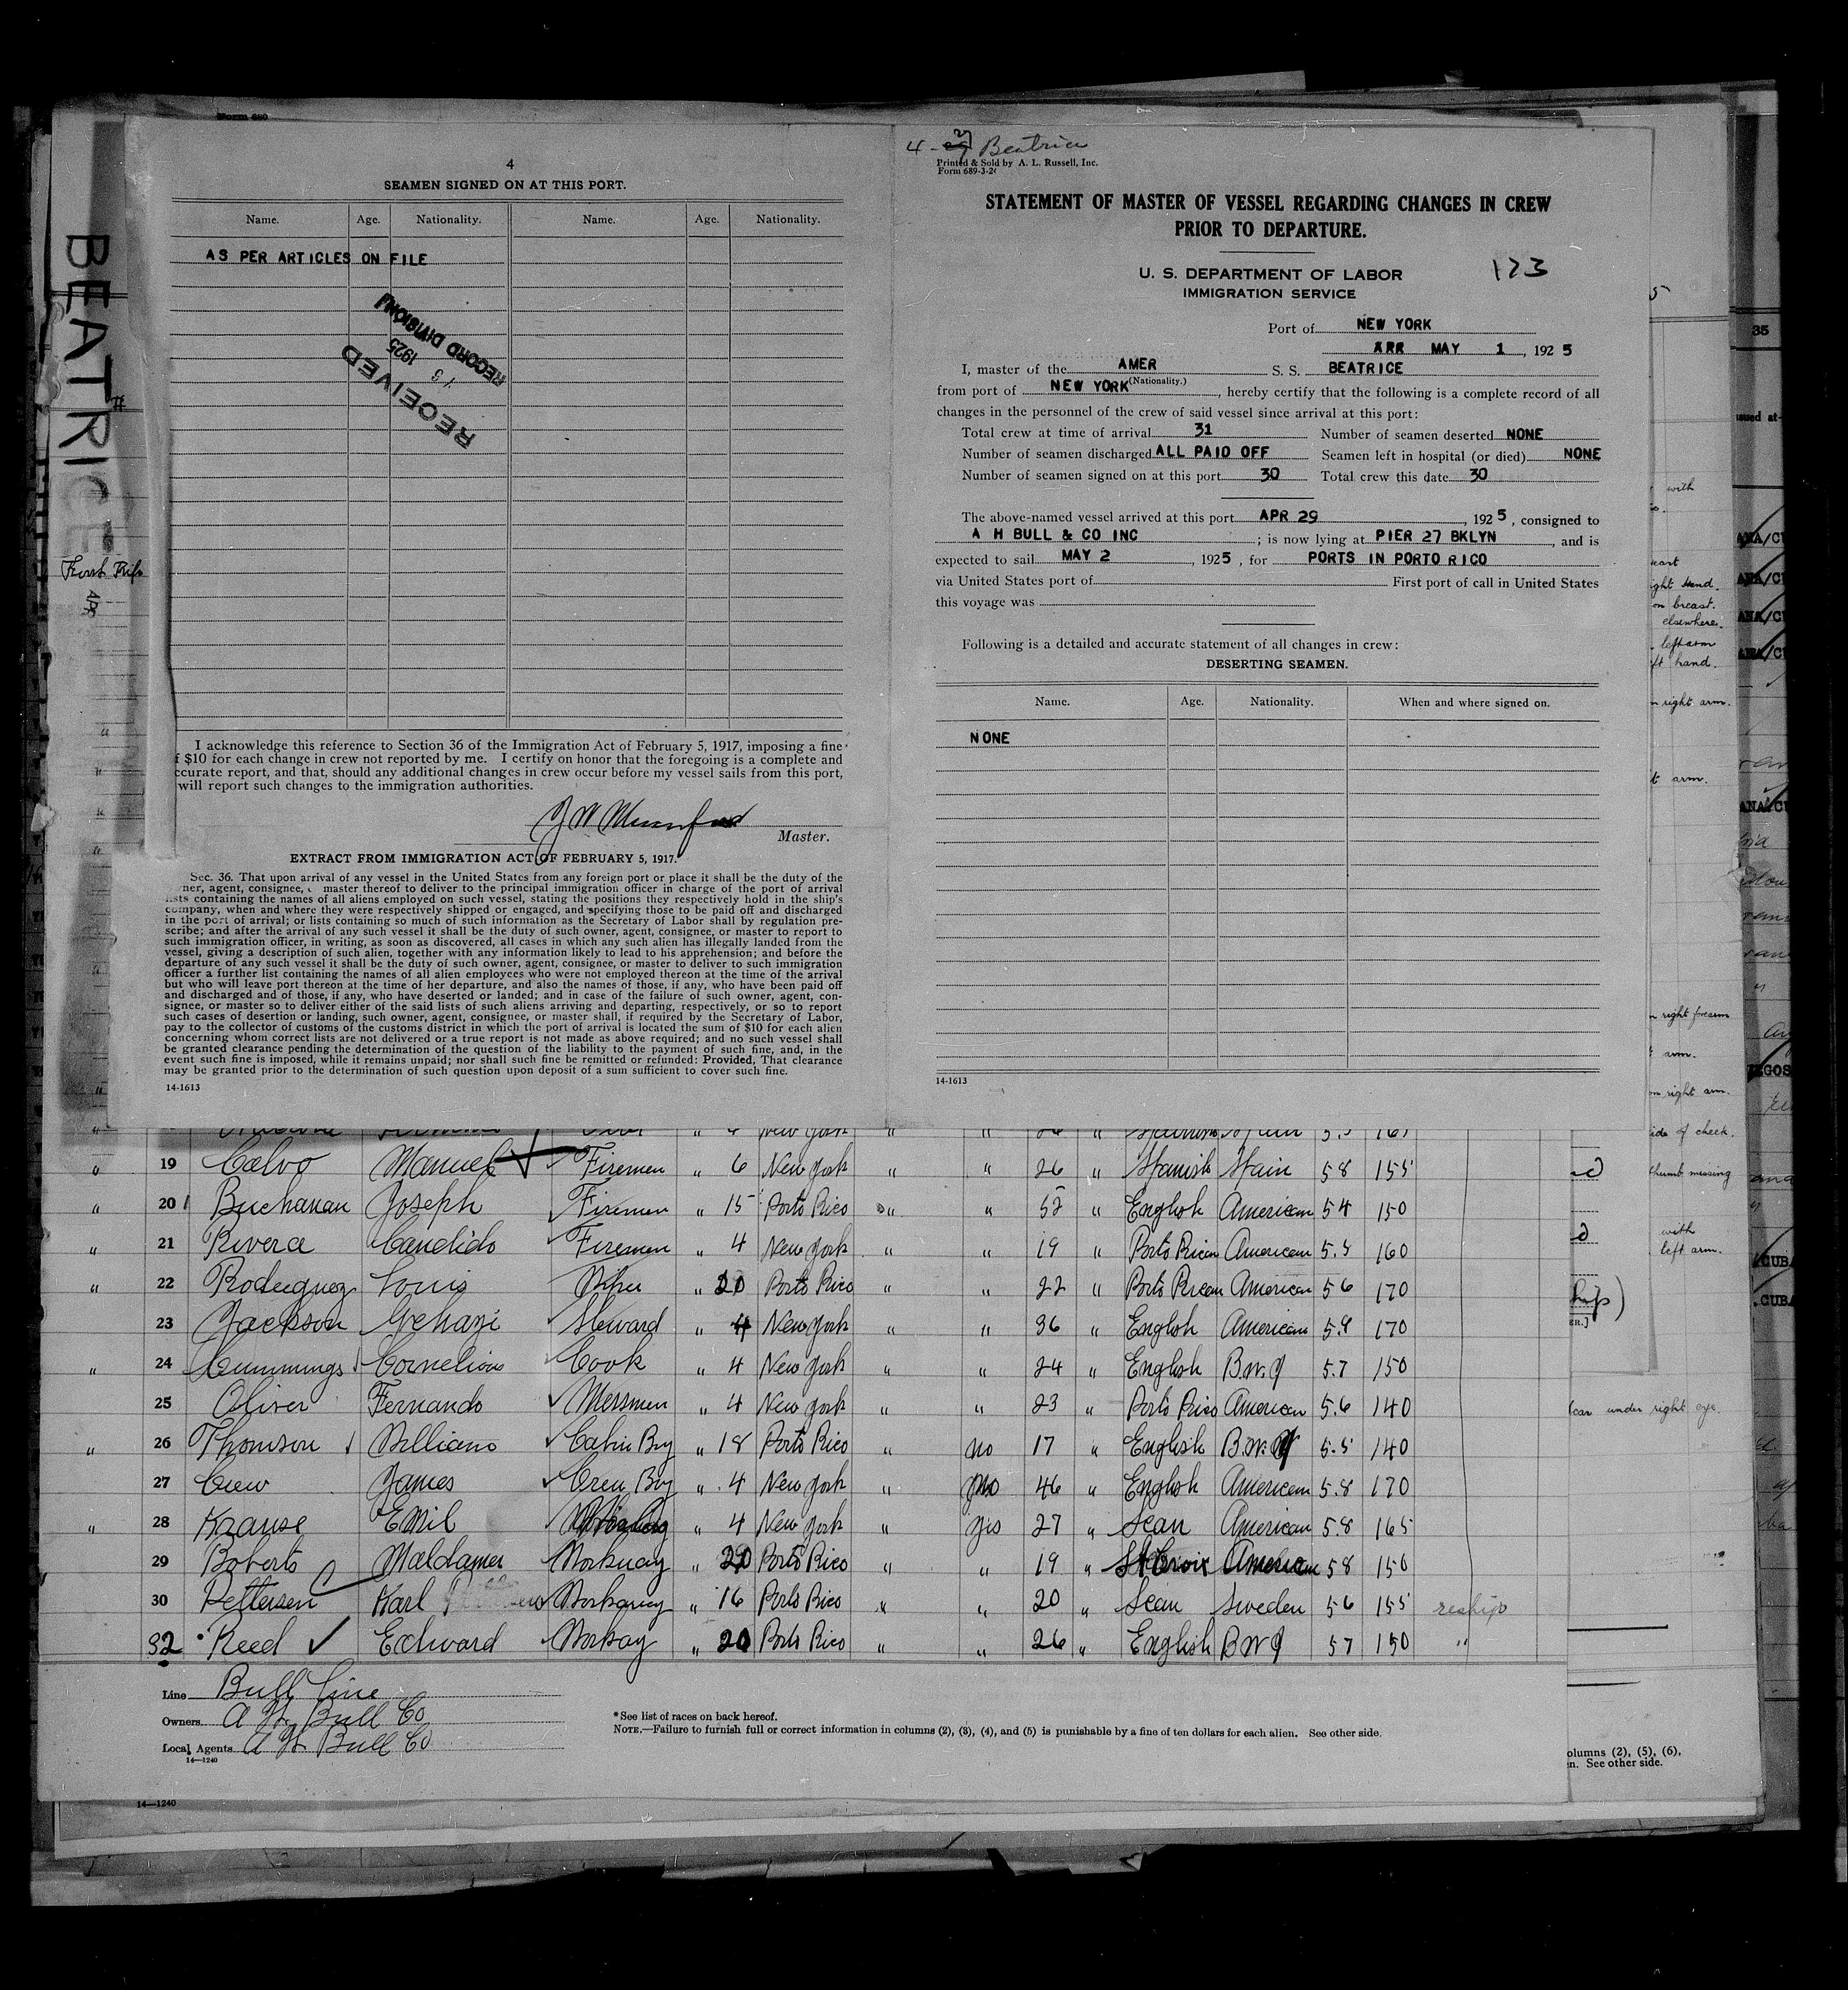 Form 689
BEATRICE
4
SEAMEN SIGNED ON AT THIS PORT.
Name. Age. Nationality. Name. Age. Nationality.
AS PER ARTICLES ON FILE
RECEIVED
1925
RECORD DIVISION
I acknowledge this reference to Section 36 of the Immigration Act of February 5, 1917, imposing a fine
f $10 for each change in crew not reported by me. I certify on honor that the foregoing is a complete and
ccurate report, and that, should any additional changes in crew occur before my vessel sails from this port,
will report such changes to the immigration authorities.
Master.
EXTRACT FROM IMMIGRATION ACT OF FEBRUARY 5, 1917.
Sec. 36. That upon arrival of any vessel in the United States from any foreign port or place it shall be the duty of the
ner, agent, consignee, master thereof to deliver to the principal immigration officer in charge of the port of arrival
lists containing the names of all aliens employed on such vessel, stating the positions they respectively hold in the ship's
company, when and where they were respectively shipped or engaged, and specifying those to be paid off and discharged
in the port of arrival; or lists containing so much of such information as the Secretary of Labor shall by regulation pre-
scribe; and after the arrival of any such vessel it shall be the duty of such owner, agent, consignee, or master to report to
such immigration officer, in writing, as soon as discovered, all cases in which any such alien has illegally landed from the
vessel, giving a description of such alien, together with any information likely to lead to his apprehension; and before the
departure of any such vessel it shall be the duty of such owner, agent, consignee, or master to deliver to such immigration
officer a further list containing the names of all alien employees who were not employed thereon at the time of the arrival
but who will leave port thereon at the time of her departure, and also the names of those, if any, who have been paid off
and discharged and of those, if any, who have deserted or landed; and in case of the failure of such owner, agent, con-
signee, or master so to deliver either of the said lists of such aliens arriving and departing, respectively, or so to report
such cases of desertion or landing, such owner, agent, consignee, or master shall, if required by the Secretary of Labor,
pay to the collector of customs of the customs district in which the port of arrival is located the sum of $10 for each alien
concerning whom correct lists are not delivered or a true report is not made as above required; and no such vessel shall
be granted clearance pending the determination of the question of the liability to the payment of such fine, and, in the
event such fine is imposed, while it remains unpaid; nor shall such fine be remitted or refunded: Provided, That clearance
may be granted prior to the determination of such question upon deposit of a sum sufficient to cover such fine.
14-1613
4 - Beatrice
Printed & Sold by A. L. Russell, Inc.
Form 689-3-24
STATEMENT OF MASTER OF VESSEL REGARDING CHANGES IN CREW
PRIOR TO DEPARTURE.
U. S. DEPARTMENT OF LABOR
IMMIGRATION SERVICE
173
Port of NEW YORK
ARR MAY 1, 1925
I, master of the AMER S. S. BEATRICE
(Nationality.)
from port of NEW YORK, hereby certify that the following is a complete record of all
changes in the personnel of the crew of said vessel since arrival at this port:
Total crew at time of arrival 31 Number of seamen deserted NONE
Number of seamen discharged ALL PAID OFF Seamen left in hospital (or died) NONE
Number of seamen signed on at this port 30 Total crew this date 30
The above-named vessel arrived at this port APR 29, 1925, consigned to
A H BULL & CO INC ; is now lying at PIER 27 BKLYN, and is
expected to sail MAY 2, 1925, for PORTS IN PORTO RICO
via United States port of First port of call in United States
this voyage was
Following is a detailed and accurate statement of all changes in crew:
DESERTING SEAMEN.
Name. Age. Nationality. When and where signed on.
NONE
14-1613
19 Calvo Manuel Firemen " 6 New York " " 26 " Spanish Spain 5 8 155
20 Buchanan Joseph Firemen " 15 Porto Rico " " 52 " English American 5 4 150
21 Rivera Candido Firemen " 4 New York " " 19 " Porto Rican American 5.5 160
22 Rodriguez Louis Wiper " 20 Porto Rico " " 22 " Porto Rican American 5 6 170
23 Jackson Gehazi Steward " 4 New York " " 36 " English American 5.9 170
24 Cummings Cornelious Cook " 4 New York " " 24 " English B.W.I 5.7 150
25 Oliver Fernando Messmen " 4 New York " " 23 " Porto Rico American 5.6 140
26 Thomson William Cabin Boy " 18 Porto Rico " No 17 " English B.W.I 5.5 140
27 Crew James Crew Boy " 4 New York " 46 " English American 5.8 170
28 Krause Emil " 4 New York " Yes 27 " Scan American 5.8 165
29 Roberts Waldamer Workway " 20 Porto Rico " " 19 " St Croix American 5 8 150
30 Pettersen Karl Workaway " 16 Porto Rico " " 20 " Scan Sweden 5 6 155 reship
32 Reed Edward Workay " 20 Porto Rico " " 26 " English B W I 5 7 150 "
Line Bull Line
Owners A. H. Bull Co
Local Agents A H Bull Co
14—1240
* See list of races on back hereof.
NOTE.—Failure to furnish full or correct information in columns (2), (3), (4), and (5) is punishable by a fine of ten dollars for each alien. See other side.
olumns (2), (5), (6),
n. See other side.
14—1240
35
sued at
with
ight hand.
on breast.
elsewhere.
left arm
ft hand.
n right arm.
t arm.
n right forearm
arm.
on right arm.
ide of cheek.
thumb missing
with
left arm.
scar under right eye.